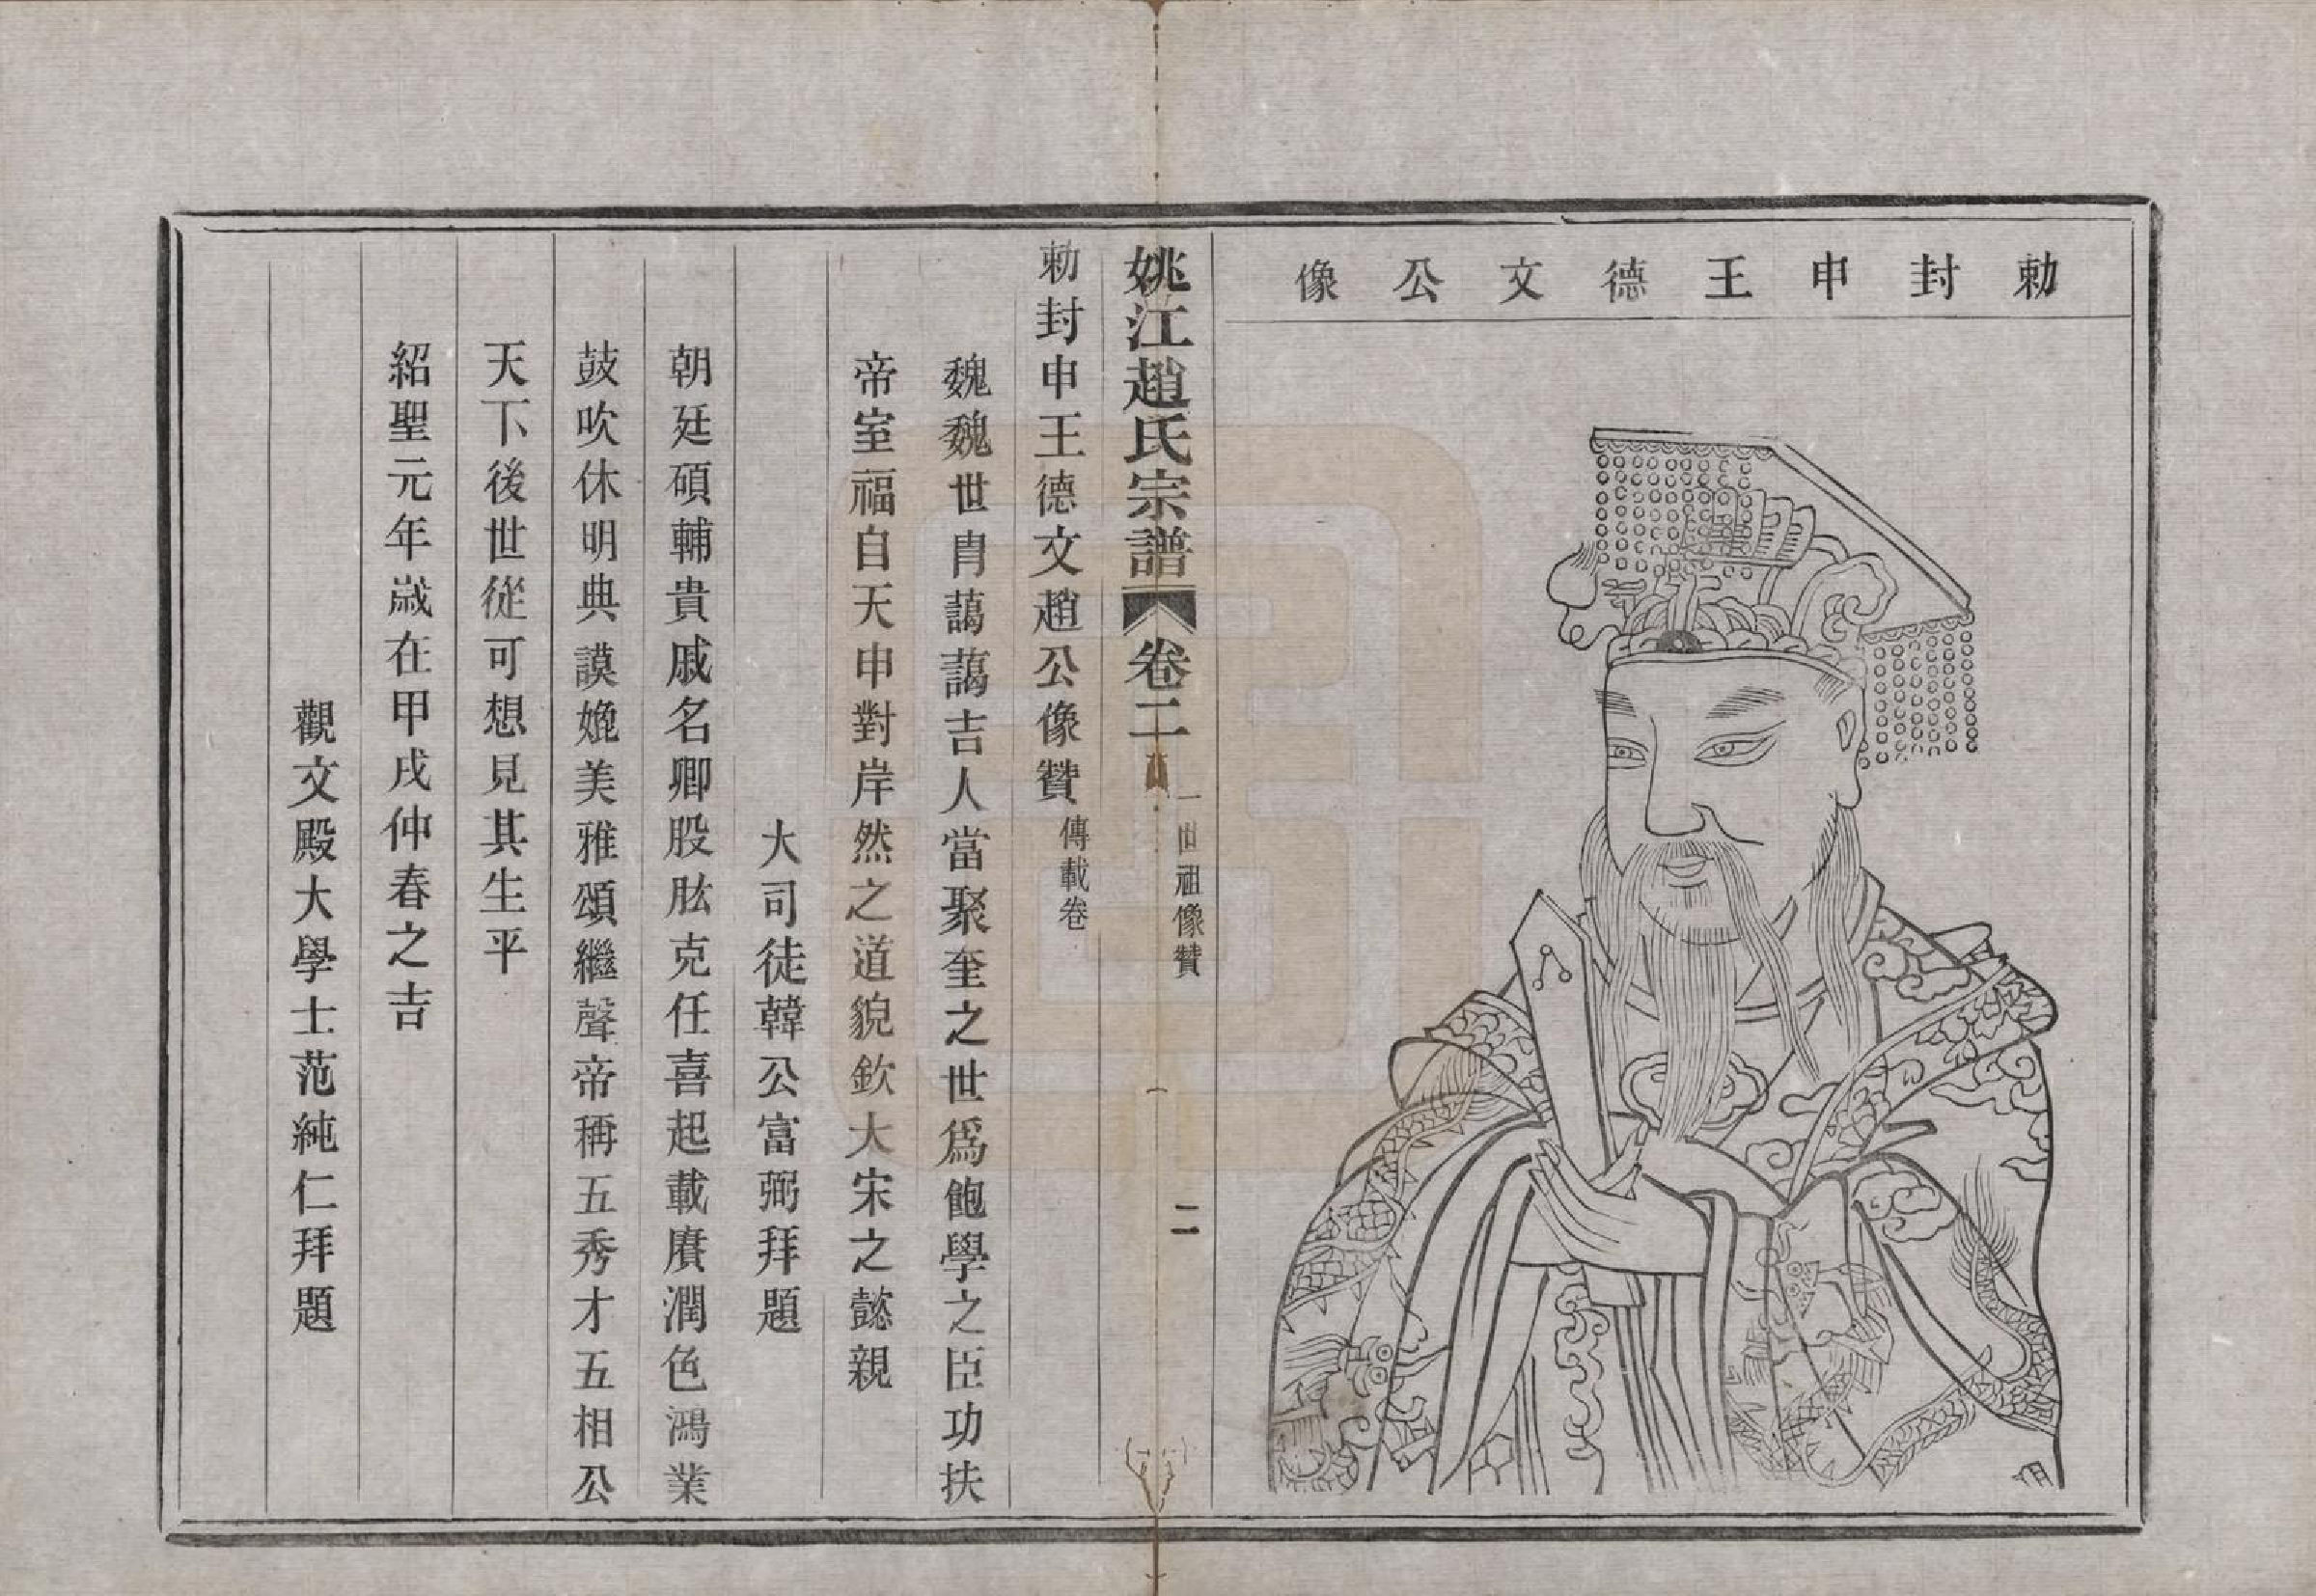 勅封申王德文公像
姚江趙氏宗譜 卷二 一世祖像贊 二
勅封申王德文趙公像贊 傳載卷
魏魏世胄藹藹吉人當聚奎之世爲飽學之臣功扶
帝室福自天申對岸然之道貌欽大宋之懿親
大司徒韓公富弼拜題
朝廷碩輔貴戚名卿股肱克任喜起載賡潤色鴻業
鼓吹休明典謨媲美雅頌繼聲帝稱五秀才五相公
天下後世從可想見其生平
紹聖元年歲在甲戌仲春之吉
觀文殿大學士范純仁拜題